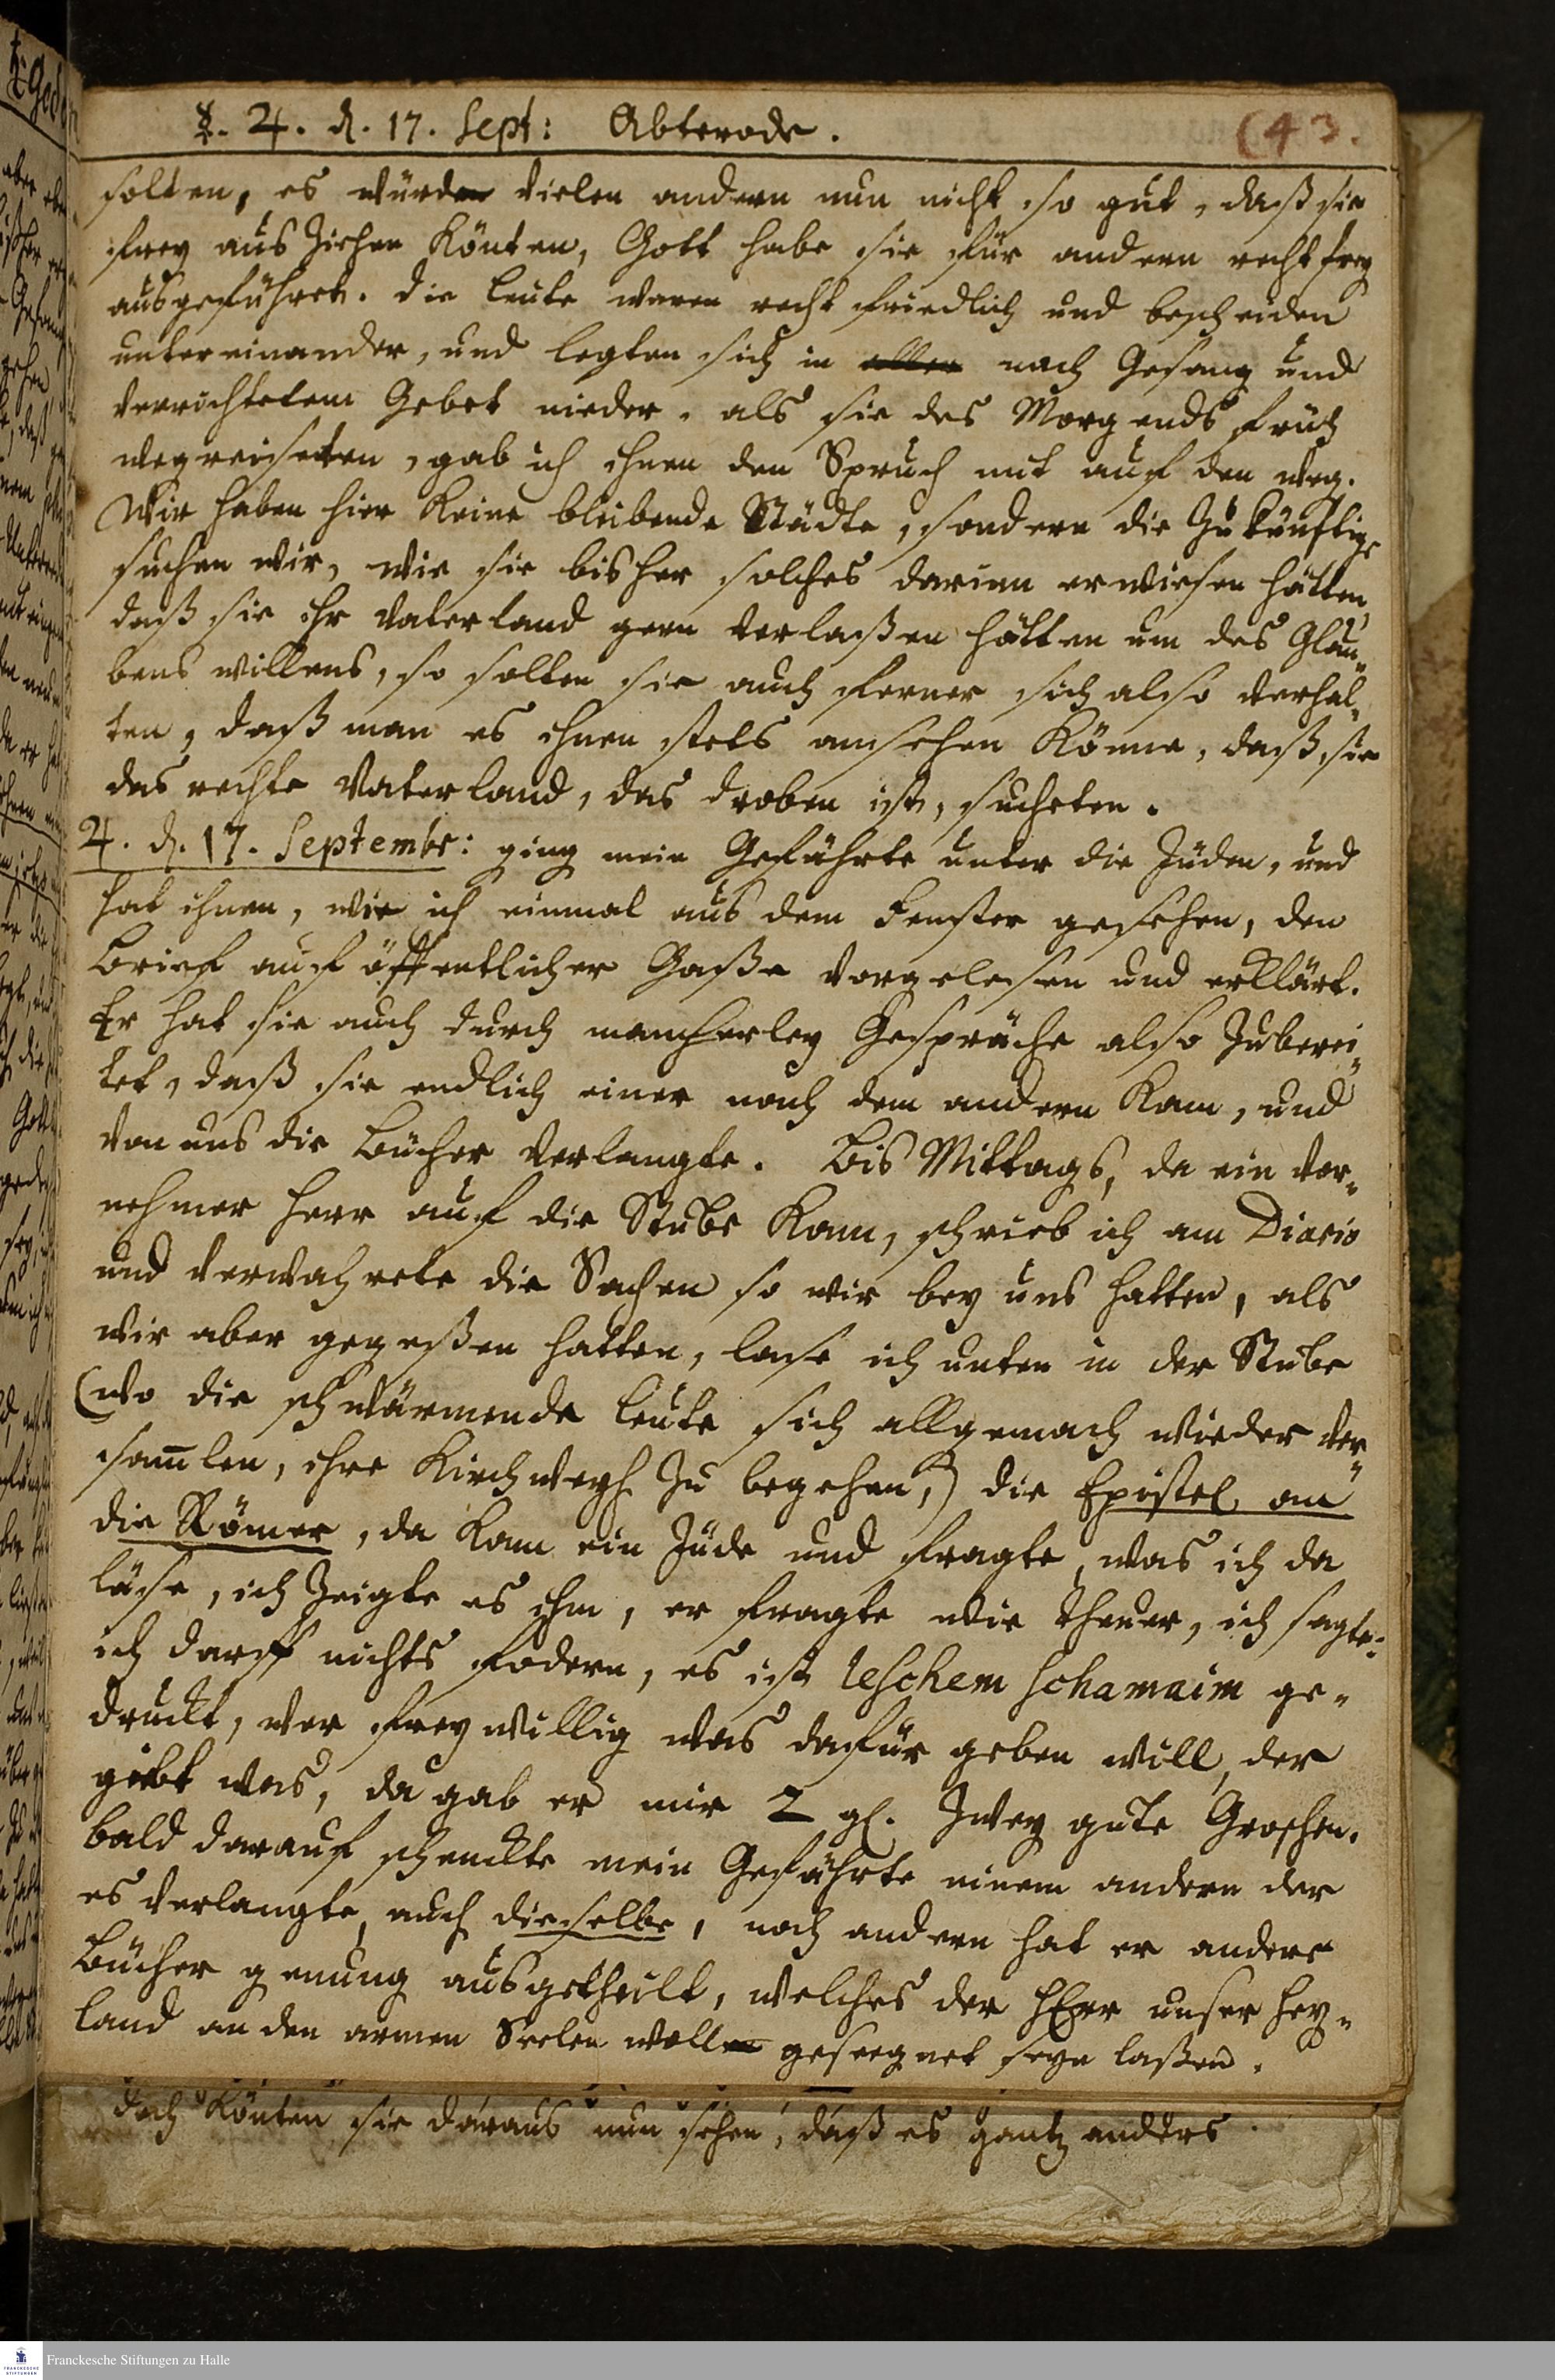 ☿. 4. d. 17. Sept: Abterode.
(43.
solten, es würde vielen andern nun nicht so gut, daß sie
frey aus ziehen könten, Gott habe sie für andern recht frey
ausgeführet. die leute waren recht friedlich und bescheiden
untereinander, und legten sich in allen nach Gesang und
verrichtetem Gebet nieder. als sie des Morgends früh
wegreiseten, gab ich ihnen den Spruch mit auf den weg.
Wir haben hier keine bleibende Städte, sondern die Zukünftige
suchen wir, wie sie bisher solches darinn erwiesen hätten,
daß sie ihr Vaterland gern verlaßen hätten um des Glau„
bens willens, so solten sie auch ferner sich also verhal„
ten, daß man es ihnen stets ansehen könne, daß sie
das rechte Vaterland, das droben ist, sucheten.
4. d. 17. Septembr: ging mein Gefährte unter die Jüden, und
hat ihnen, wie ich einmal aus dem Fenster gesehen, den
Brief auf öffentlicher Gaße vorgelesen und erklärt.
Er hat sie auch durch mancherley Gespräche also zuberei„
tet, daß sie endlich einer nach dem andern kam, und
von uns die Bücher verlangte. Bis Mittags, da ein vor„
nehmer Herr auf die Stube kam, schrieb ich am Diario
und verwahrete die Sachen so wir bey uns hatten, als
wir aber gegeßen hatten, lase ich unten in der Stube
(wo die schwärmende leute sich allgemach wieder ver„
sam̅len, ihre Kirchweyh zu begehen,) die Epistel an
die Römer, da kam ein Jüde und fragte, was ich da
läse, ich zeigte es ihm, er fragte wie theuer, ich sagte:
ich darff nichts fodern, es ist leschem schamaim ge„
druckt, wer freywillig was dafür geben will, der
giebt was, da gab er mir 2 gl. zwey gute Groschen.
bald darauf schenckte mein Gefährte einem andern der
es verlangte, auch dieselbe, noch andern hat er andere
Bücher genung ausgetheilt, welches der HErr unser Hey„
land an den armen Seelen wolle geseegnet seyn laßen.
doch könten sie daraus nun sehen, daß es gantz anders
Franckesche Stiftungen zu Halle